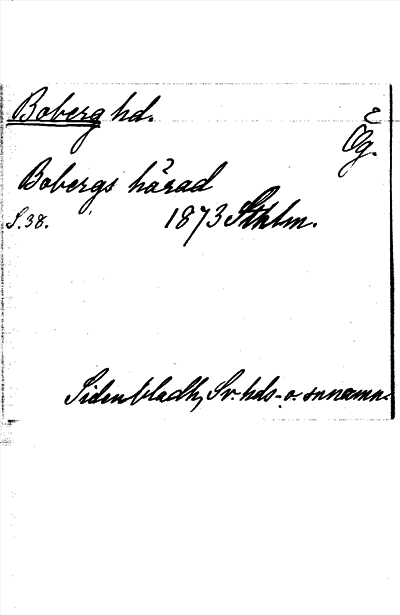 Boberg hd.
Ög.
Bobergs härad
S. 38. 1873 Sthlm.
Sidenbladh, Sv. hds- o. snnamn.